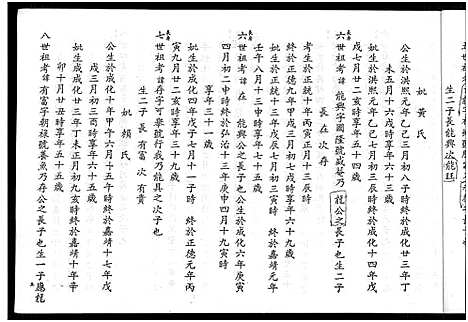 生二子長龍興次龍珏
妣黃氏
公生於洪熙元年乙巳三月初八子時終於成化廿三年丁
未五月十六戌時享年六十三歲
妣生於洪熙元年乙巳七月初三辰時終於成化十四年戊
戌七月廿二亥時享年五十四歲
六世祖考諱龍興字國隆號威菴乃龍公之長子也生二子
長在次存
考生於正統十年丙寅正月十三辰時
終於正德九年甲戌三月初七戌時享年六十九歲
妣生於正統十三年戊辰七月初三寅時終於嘉靖元年
壬午八月十三申時享年七十五歲
六世祖考諱在龍興公之長子也公生於成化六年庚寅
四月初二申時終於弘治十三年庚申四月十九寅時
享年三十一歲
妣生於成化四年戊子七月十一子時終於正德元年丙
寅九月廿二亥時享年三十九歲
七世祖考諱存字可崇號行我乃龍具之次子也
生二子長有富次有貴
妣賴氏
公生於成化十年甲午六月十五午時終於嘉靖十七年戊
戌三月初三酉時享年六十五歲
妣生於成化廿三年丁未正月初九亥時終於嘉靖十年辛
卯十月廿丑時享年四十五歲
八世祖考諱有富字朝祿號養魚乃存公之長子也生一子應龍